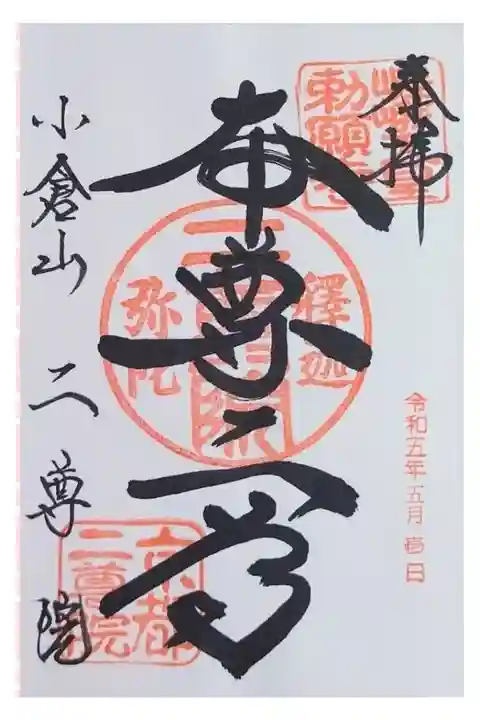 奉拝
勅願寺
令和五年五月壱日
本尊二尊
釋迦
二尊院
弥陀
小倉山 二尊院
京都
二尊院